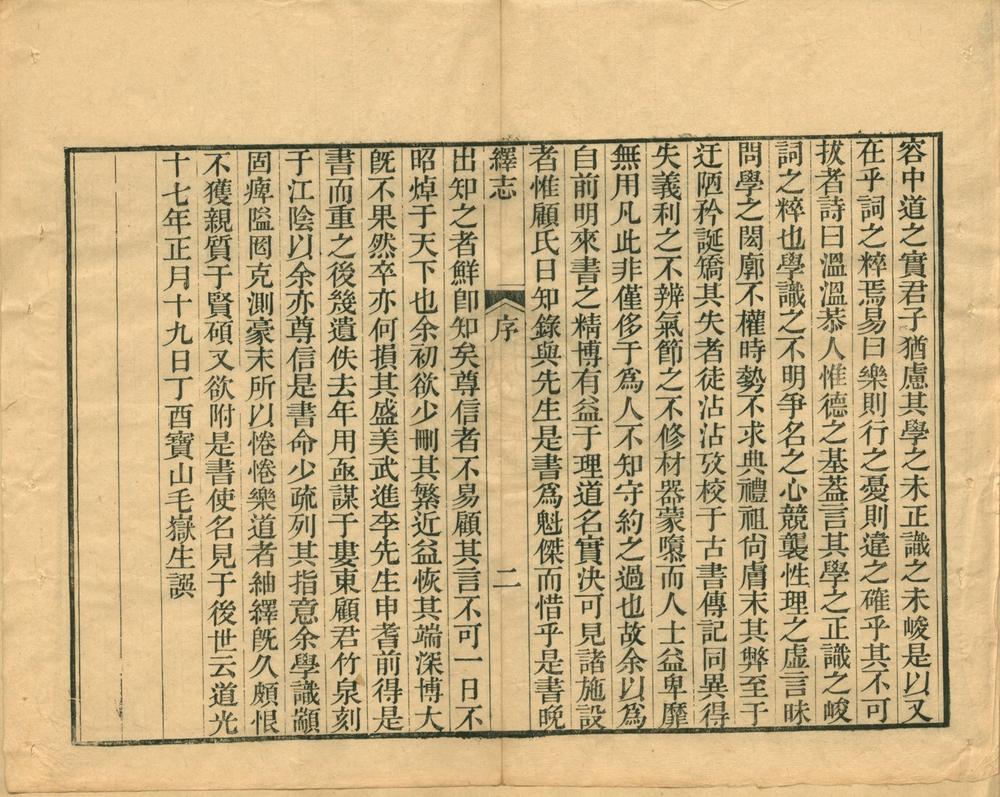 容中道之實君子猶慮其學之未正識之未峻是以又
在乎詞之粹焉易曰樂則行之憂則違之確乎其不可
拔者詩曰溫溫恭人惟德之基葢言其學之正識之峻
詞之粹也學識之不明爭名之心競襲性理之虛言昧
問學之閎廓不權時勢不求典禮祖尙膚末其弊至于
迂陋矜誕矯其失者徒沾沾攷校于古書傳記同異得
失義利之不辨氣節之不修材器蒙隳而人士益卑靡
無用凡此非僅侈于爲人不知守約之過也故余以爲
自前明來書之精博有益于理道名實決可見諸施設
者惟顧氏日知錄與先生是書爲魁傑而惜乎是書晚
繹志 序 二
出知之者鮮卽知矣尊信者不易顧其言不可一日不
昭焯于天下也余初欲少刪其繁近益恢其端深博大
旣不果然卒亦何損其盛美武進李先生申耆前得是
書而重之後幾遺佚去年用亟謀于婁東顧君竹泉刻
于江陰以余亦尊信是書命少疏列其指意余學識顓
固痺隘罔克測豪末所以惓惓樂道者紬繹旣久頗恨
不獲親質于賢碩又欲附是書使名見于後世云道光
十七年正月十九日丁酉寶山毛嶽生譔